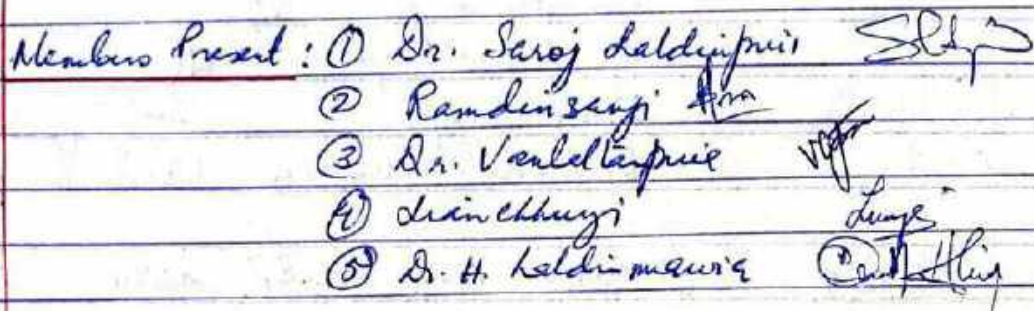 Members Present : ① Dr. Saroj Laldinpuii
② Ramdinsangi
③ Dr. Vanlaltanpuia
④ Lianchhungi
⑤ Dr. H. Laldinmawia